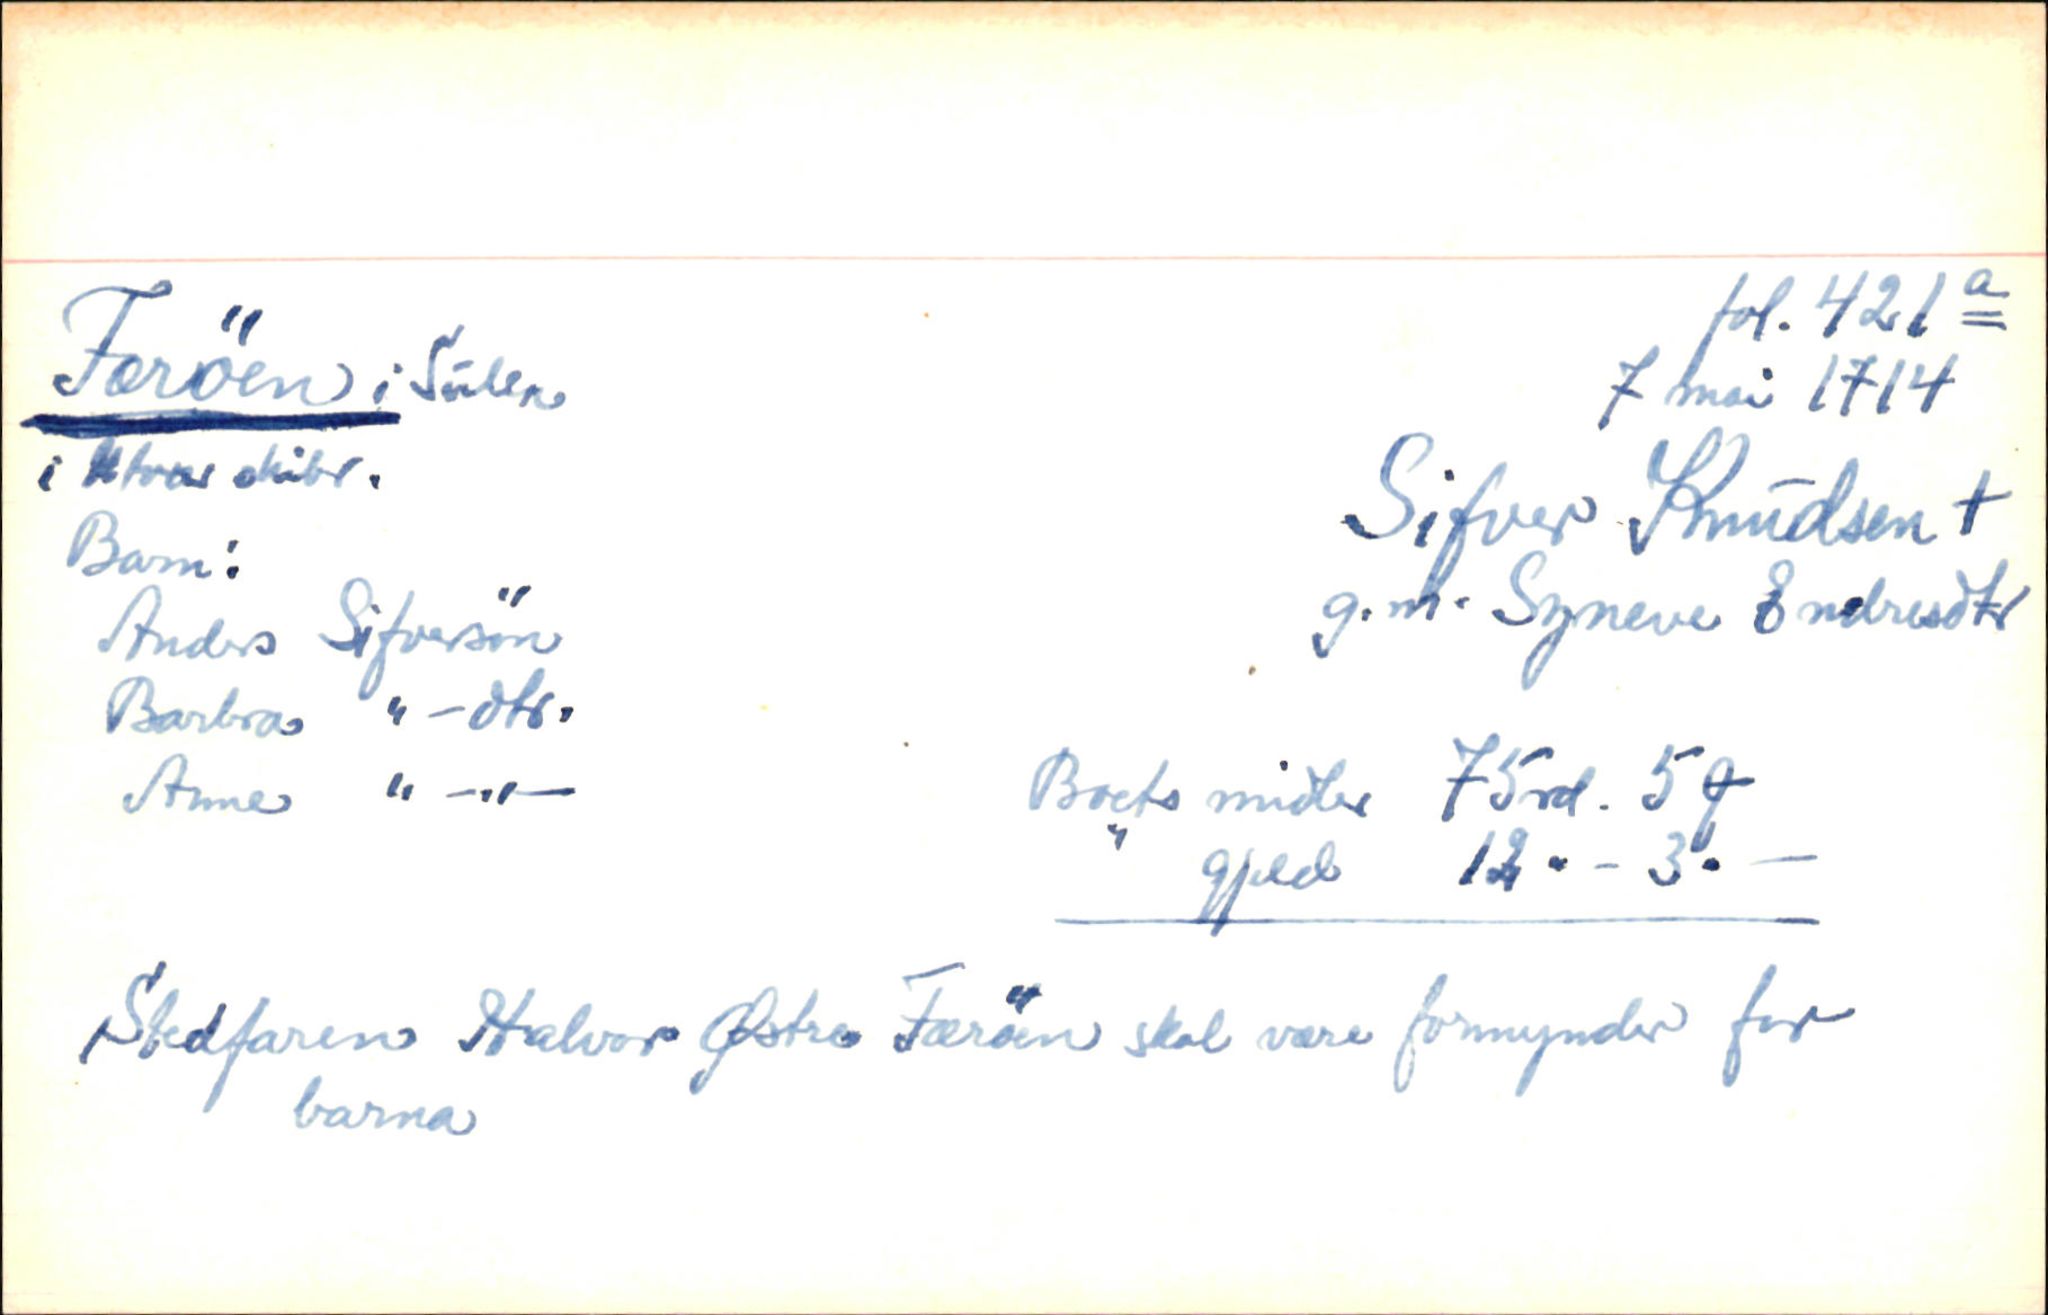 fol. 421 a
Færöen i Sulen
7 mai 1714
i Utvær skibr.
Sifver Knudsen †
Barn:
g.m. Syneve Endresdtr
Anders Sifversön
Barbra " - dtr.
Anne " - " -
Boets midler 75 rd. 5 ꝗ
" gjeld 12 " - 3 " -
Stedfaren Halvor Østre Færöen skal være formynder for
barna